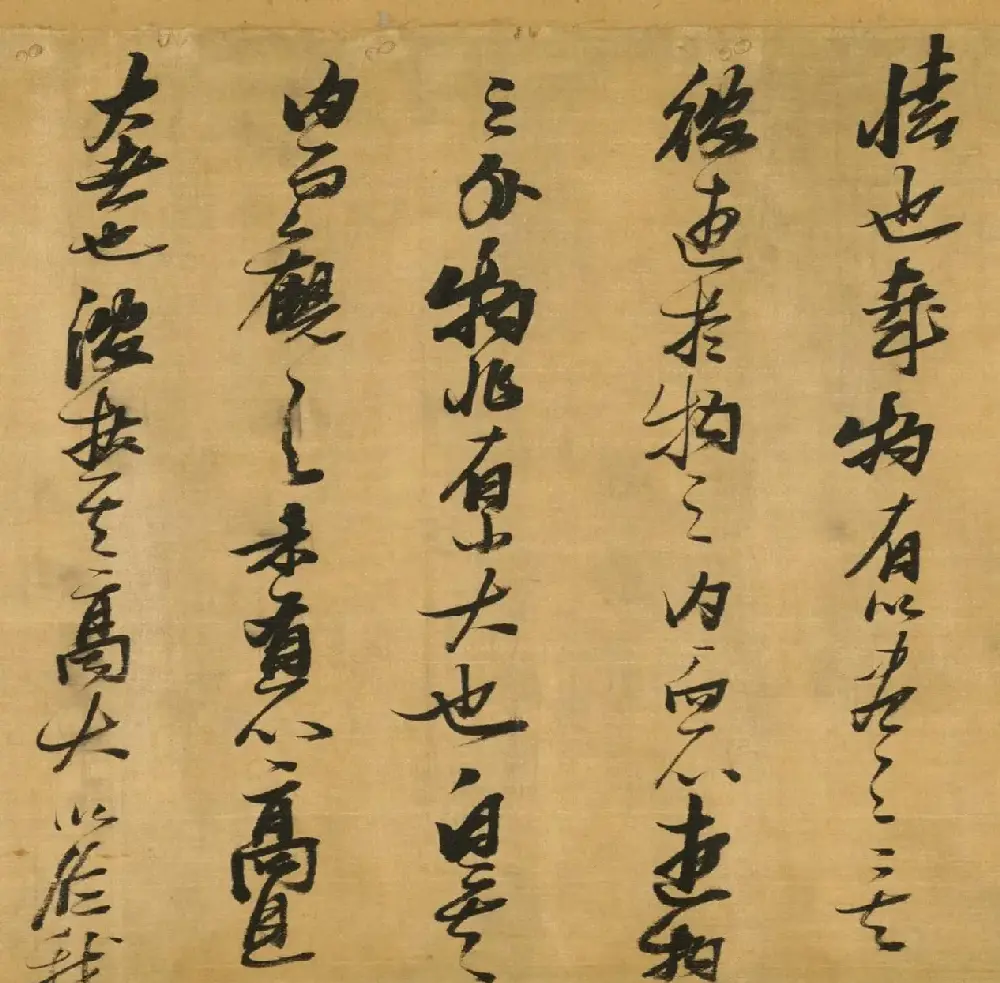 情也哉物有以盖之矣
彼遊於物之内而不遊物
之外物非有小大也自其
内而觀之未有不高且
大者也彼挾其高大以臨我